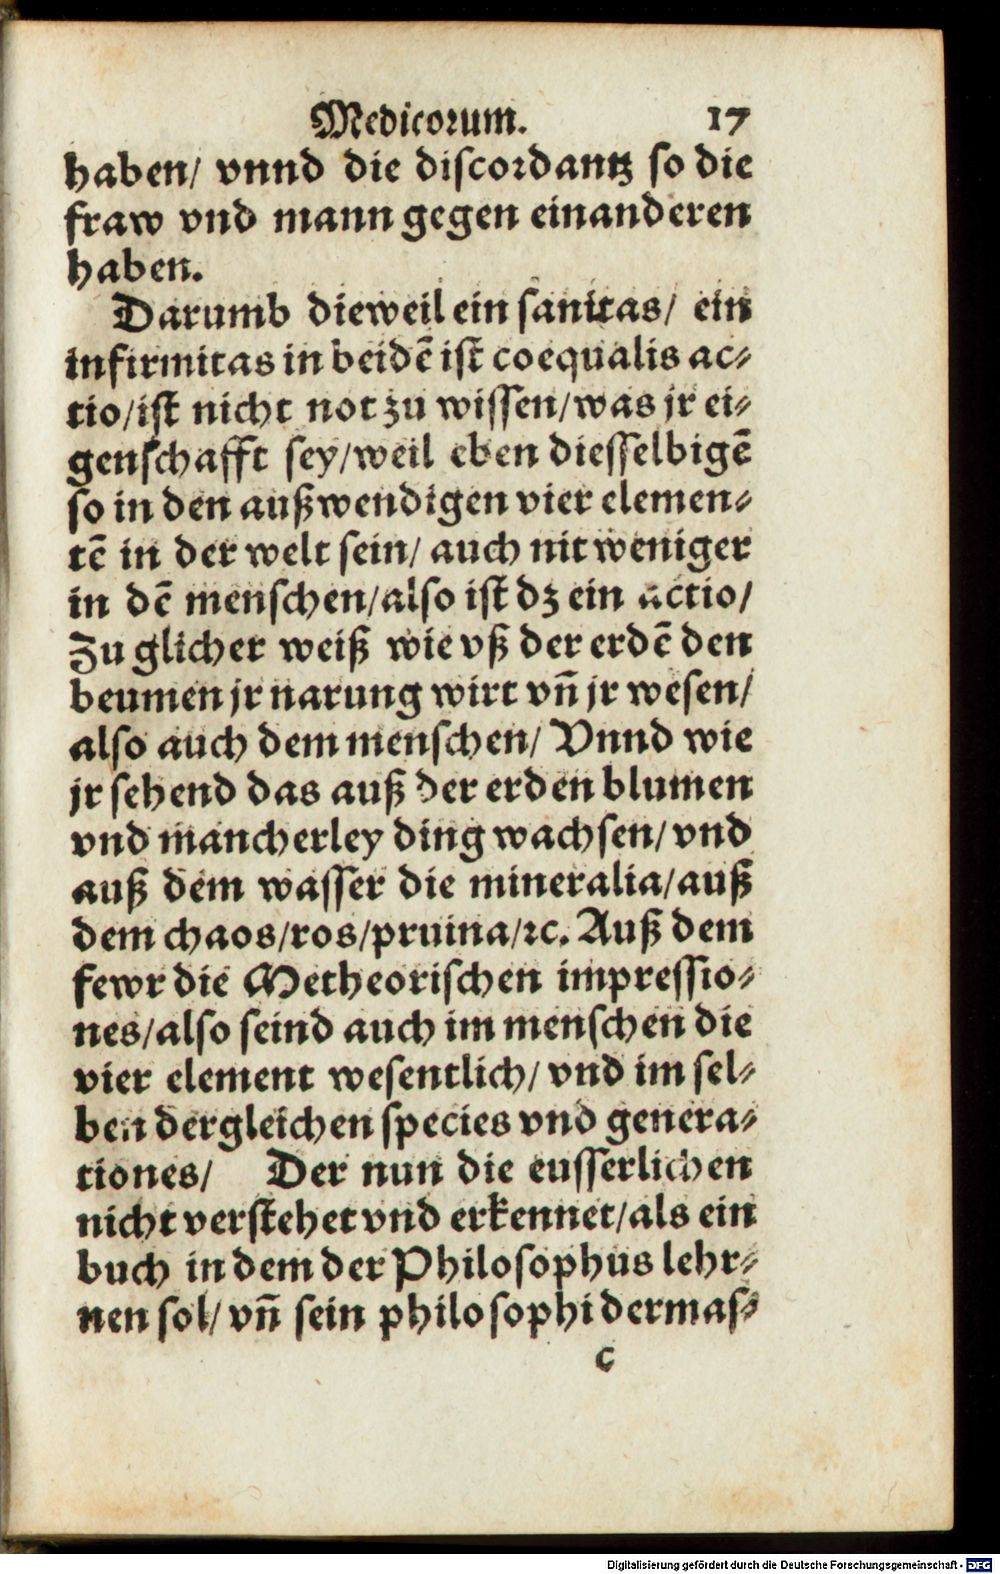 Medicorum. 17
haben/ vnnd die discordantz so die
fraw vnd mann gegen einanderen
haben.
Darumb dieweil ein sanitas/ ein
infirmitas in beidē ist coequalis ac⸗
tio/ist nicht not zu wissen/was jr ei⸗
genschafft sey/weil eben diesselbigē
so in den außwendigen vier elemen⸗
tē in der welt sein/ auch nit weniger
in dē menschen/also ist dz ein actio/
Zu glicher weiß wie vß der erdē den
beumen jr narung wirt vñ jr wesen/
also auch dem menschen/ Vnnd wie
jr sehend das auß der erden blumen
vnd mancherley ding wachsen/ vnd
auß dem wasser die mineralia/auß
dem chaos/ros/pruina/ꝛc. Auß dem
fewr die Metheorischen impressio⸗
nes/also seind auch im menschen die
vier element wesentlich/ vnd im sel⸗
ben dergleichen species vnd genera⸗
tiones/ Der nun die eusserlichen
nicht verstehet vnd erkennet/als ein
buch in dem der Philosophus lehr⸗
nen sol/ vñ sein philosophi dermas⸗
c
Digitalisierung gefördert durch die Deutsche Forschungsgemeinschaft - DFG